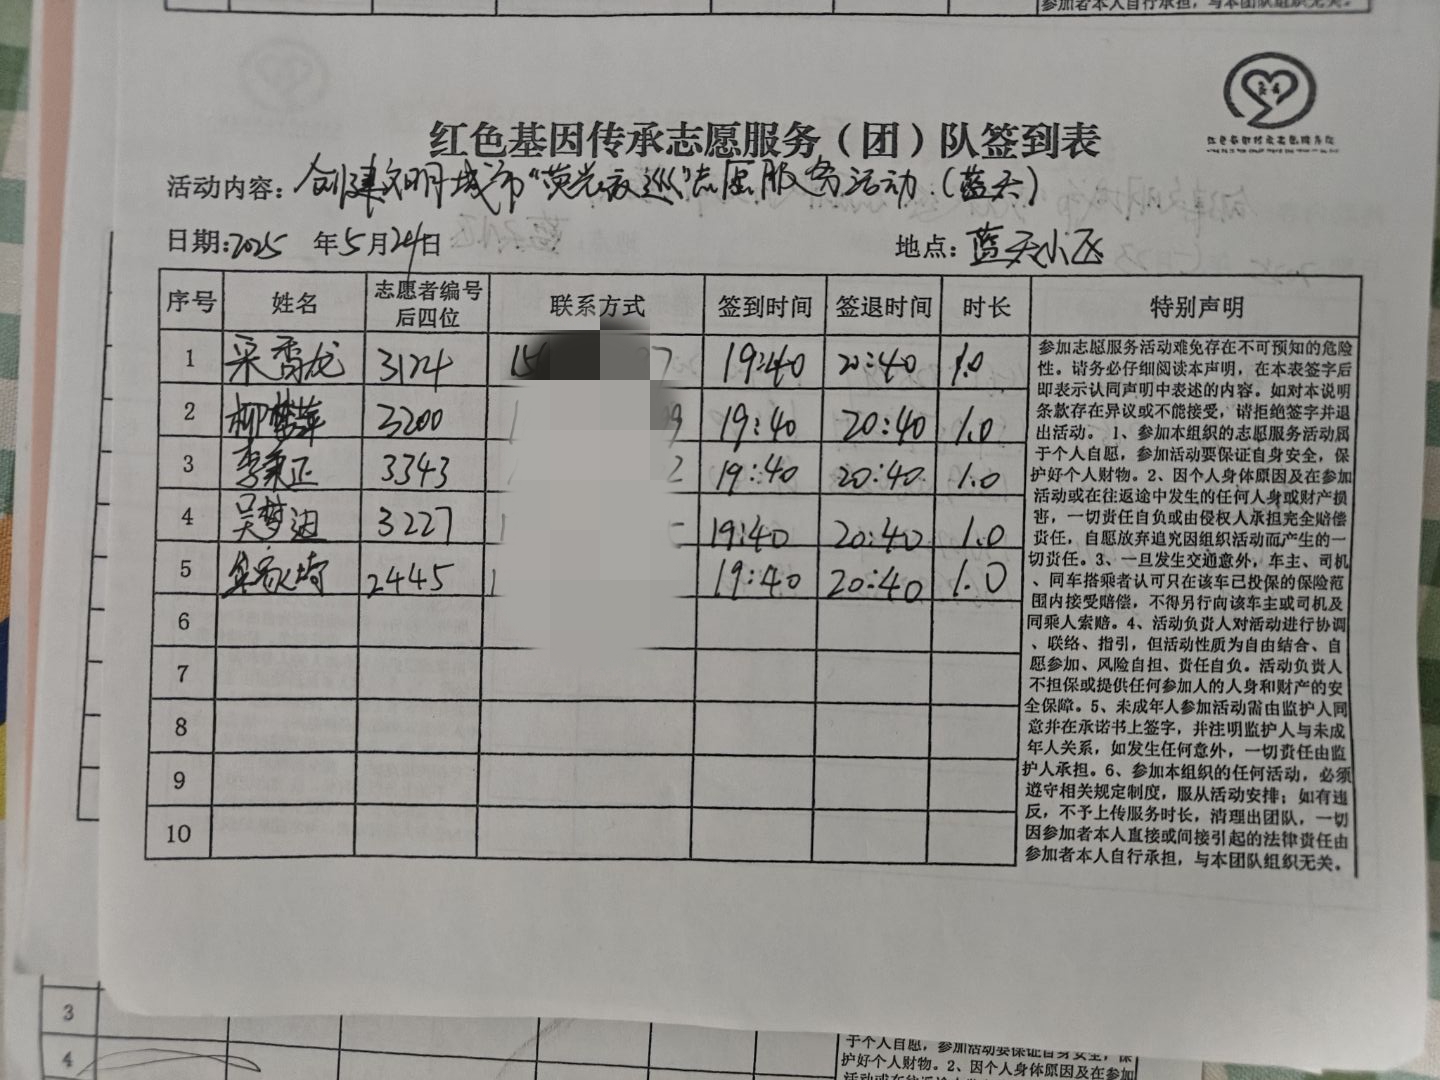 参加者本人自行承担，与本团队组织无关。
红色基因传承志愿服务（团）队签到表
活动内容：创建文明城市“荧光夜巡”志愿服务活动.（蓝天）
日期:2025 年5月24日 地点:蓝天小区
序号 姓名 志愿者编号后四位 联系方式 签到时间 签退时间 时长 特别声明
1 3124 19:40 20:40 1.0
2 柳梦萍 3200 19:40 20:40 1.0
3 李秉正 3343 19:40 20:40 1.0
4 吴梦迪 3227 19:40 20:40 1.0
5 2445 19:40 20:40 1.0
6
7
8
9
10
参加志愿服务活动难免存在不可预知的危险
性。请务必仔细阅读本声明，在本表签字后
即表示认同声明中表述的内容。如对本说明
条款存在异议或不能接受，请拒绝签字并退
出活动。1、参加本组织的志愿服务活动属
于个人自愿，参加活动要保证自身安全，保
护好个人财物。2、因个人身体原因及在参加
活动或在往返途中发生的任何人身或财产损
害，一切责任自负或由侵权人承担完全赔偿
责任，自愿放弃追究因组织活动而产生的一
切责任。3、一旦发生交通意外，车主、司机
、同车搭乘者认可只在该车已投保的保险范
围内接受赔偿，不得另行向该车主或司机及
同乘人索赔。4、活动负责人对活动进行协调
、联络、指引，但活动性质为自由结合、自
愿参加、风险自担、责任自负。活动负责人
不担保或提供任何参加人的人身和财产的安
全保障。5、未成年人参加活动需由监护人同
意并在承诺书上签字，并注明监护人与未成
年人关系，如发生任何意外，一切责任由监
护人承担。6、参加本组织的任何活动，必须
遵守相关规定制度，服从活动安排；如有违
反，不予上传服务时长，清理出团队，一切
因参加者本人直接或间接引起的法律责任由
参加者本人自行承担，与本团队组织无关。
3
4
于个人自愿，参加活动要保证自身安全，保
护好个人财物。2、因个人身体原因及在参加